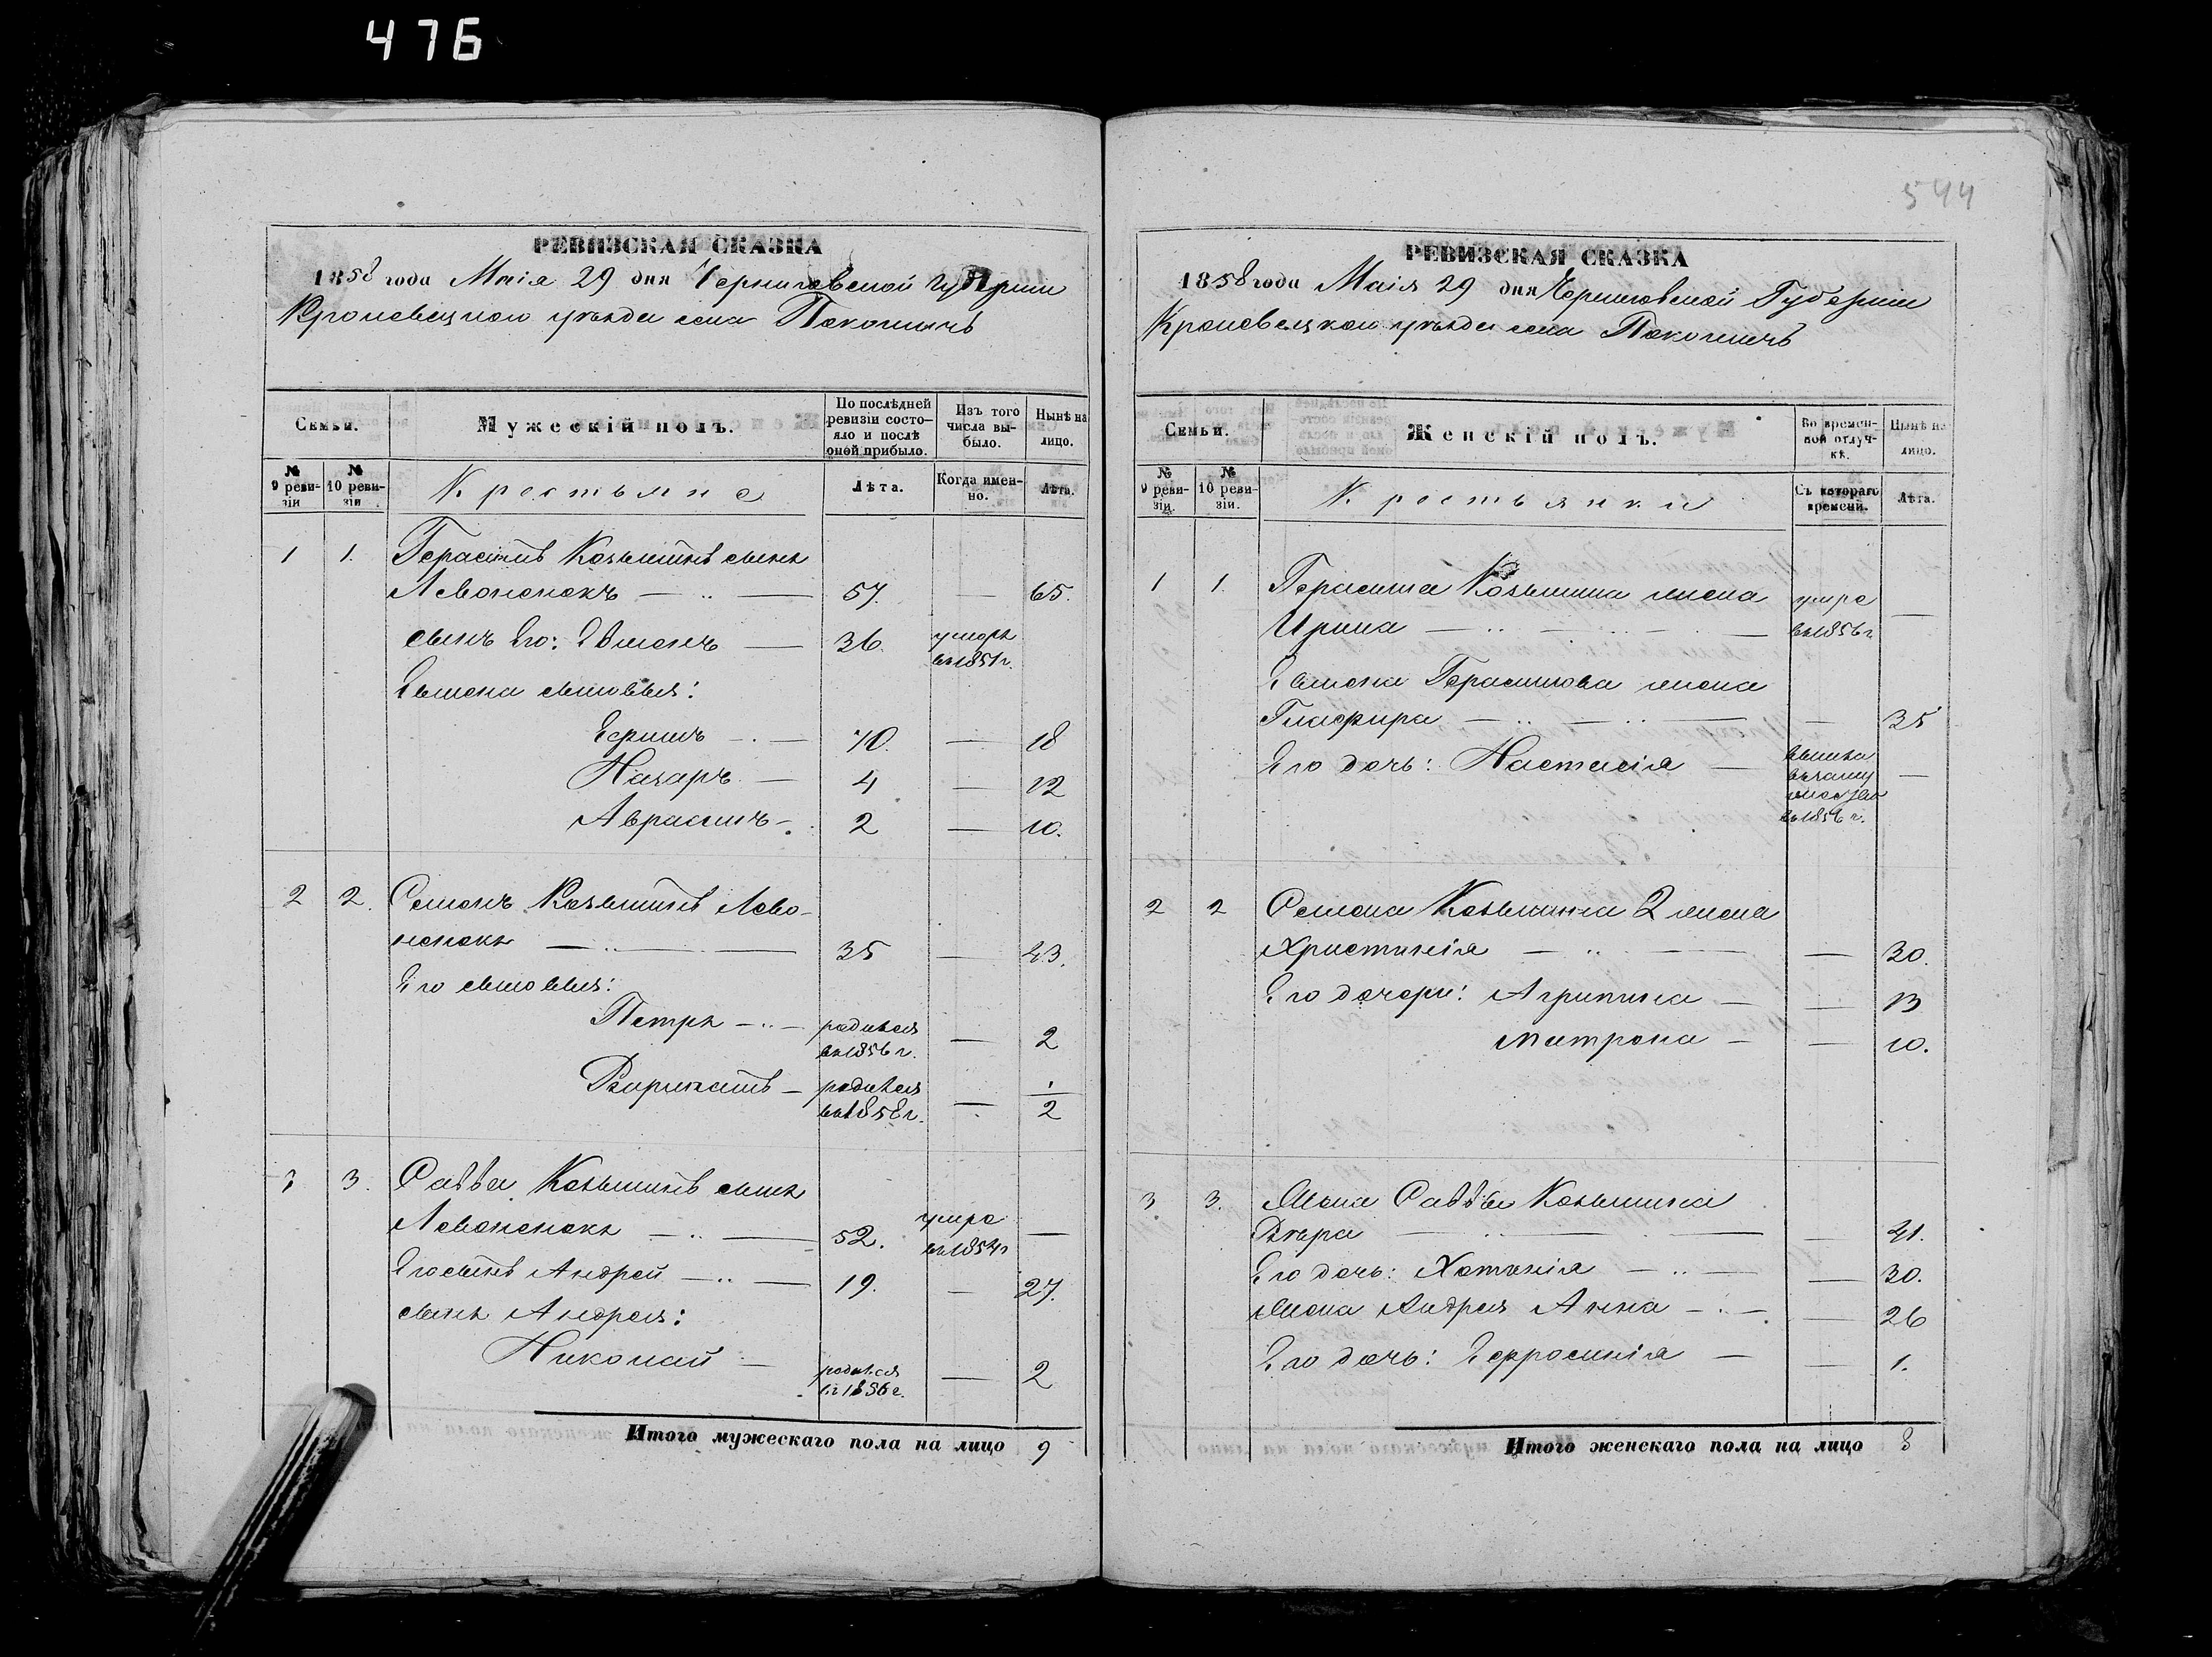 476
544
РЕВИЗСКАЯ СКАЗКА
1858 года Маія 29 дня Черниговской Губерніи
Кролевецкого уѣзда села Покошичь
Семьи.
Мужескій полъ.
По послѣдней ревизіи состояло и послѣ оной прибыло.
Изъ того числа выбыло.
Нынѣ на лицо.
№ 9 ревизіи
№ 10 ревизіи
Крестьяне
Лѣта.
Когда именно.
Лѣта.
1 1. Герасимъ Козьминъ сынъ
Левоненокъ — 57. — 65.
сынъ Его: Евменъ — 36. умеръ въ 1851 г.
Евмена сыновья:
Ефимъ — 10. — 18
Назаръ — 4 — 12
Аврамъ — 2 — 10.
2 2. Семенъ Козьминъ Лево-
ненокъ — 35 — 43.
Его сыновья:
Петръ — родился въ 1856 г. — 2
родился въ 1858 г. — 1/2
3 3. Савва Козьминъ сынъ
Левоненокъ — 52. умре въ 1854 г —
Его сынъ Андрей — 19. — 27.
сынъ Андрея:
Николай — родился въ 1856 г. — 2
Итого мужескаго пола на лицо 9
РЕВИЗСКАЯ СКАЗКА
1858 года Маія 29 дня Черниговской Губерніи
Кролевецкого уѣзда села Покошичь
Семьи.
Женскій полъ.
Во временной отлучкѣ.
Нынѣ на лицо.
№ 9 ревизіи.
№ 10 ревизіи.
Крестьянки
Съ котораго времени.
Лѣта.
1 1. Герасима Козьмина жена
Ирина — умре въ 1856 г. —
Евмена Герасимова жена
Глафира — — 35
Его дочь: Настасія — вышла въ замужество въ 1856 г. —
2 2 Семена Козьмина 2 жена
Христинія — — 30.
Его дочери: Агрипина — — 13
Матрона — — 10.
3 3. Жена Саввы Козьмина
— — 41.
Его дочь: Хотинія — — 30.
Жена Андрея Анна — — 26
Его дочь: Ефросинія — — 1.
Итого женскаго пола на лицо 8